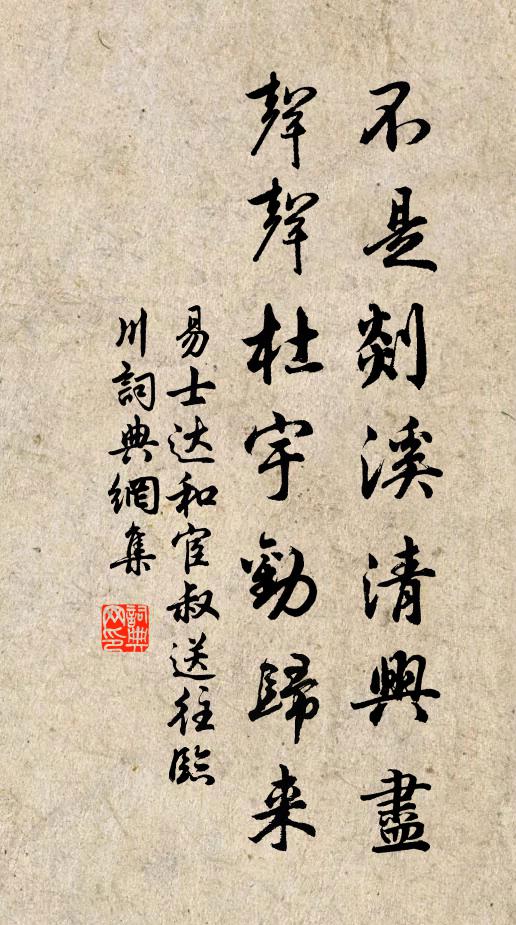 不是剡溪清興盡
聲聲杜宇勸歸来
易士达和宦叔送往臨
川詞典網集
詞典
网印